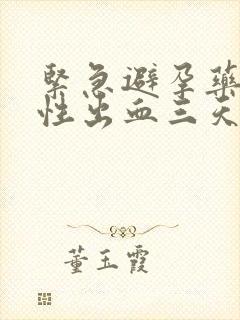 緊急避孕藥
性出血三天
董玉霞